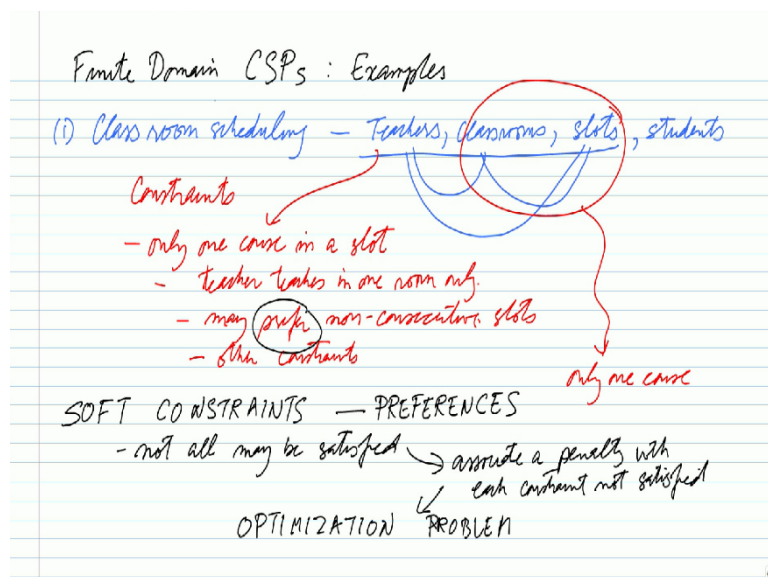 Finite Domain CSPs : Examples
(1) Class room scheduling — Teachers, Classrooms, slots, students
Constraints
- only one course in a slot
- teacher teaches in one room only.
- may prefer non-consecutive slots
- other constraints
only one course
SOFT CONSTRAINTS — PREFERENCES
- not all may be satisfied
associate a penalty with
each constraint not satisfied
OPTIMIZATION PROBLEM